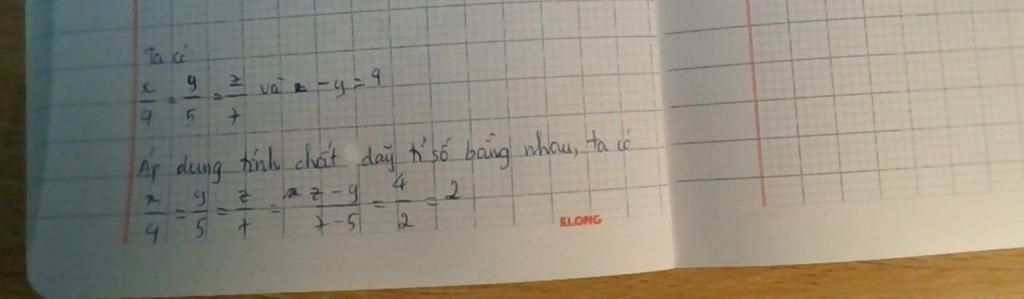 Ta có
x/4 = y/5 = z/7 và z - y = 4
Áp dụng tính chất dãy tỉ số bằng nhau, ta có
x/4 = y/5 = z/7 = z - y/7 - 5 = 4/2 = 2
KLONG